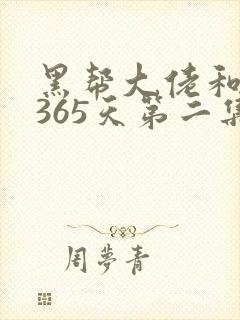 黑帮大佬和
365天第二集
周夢青